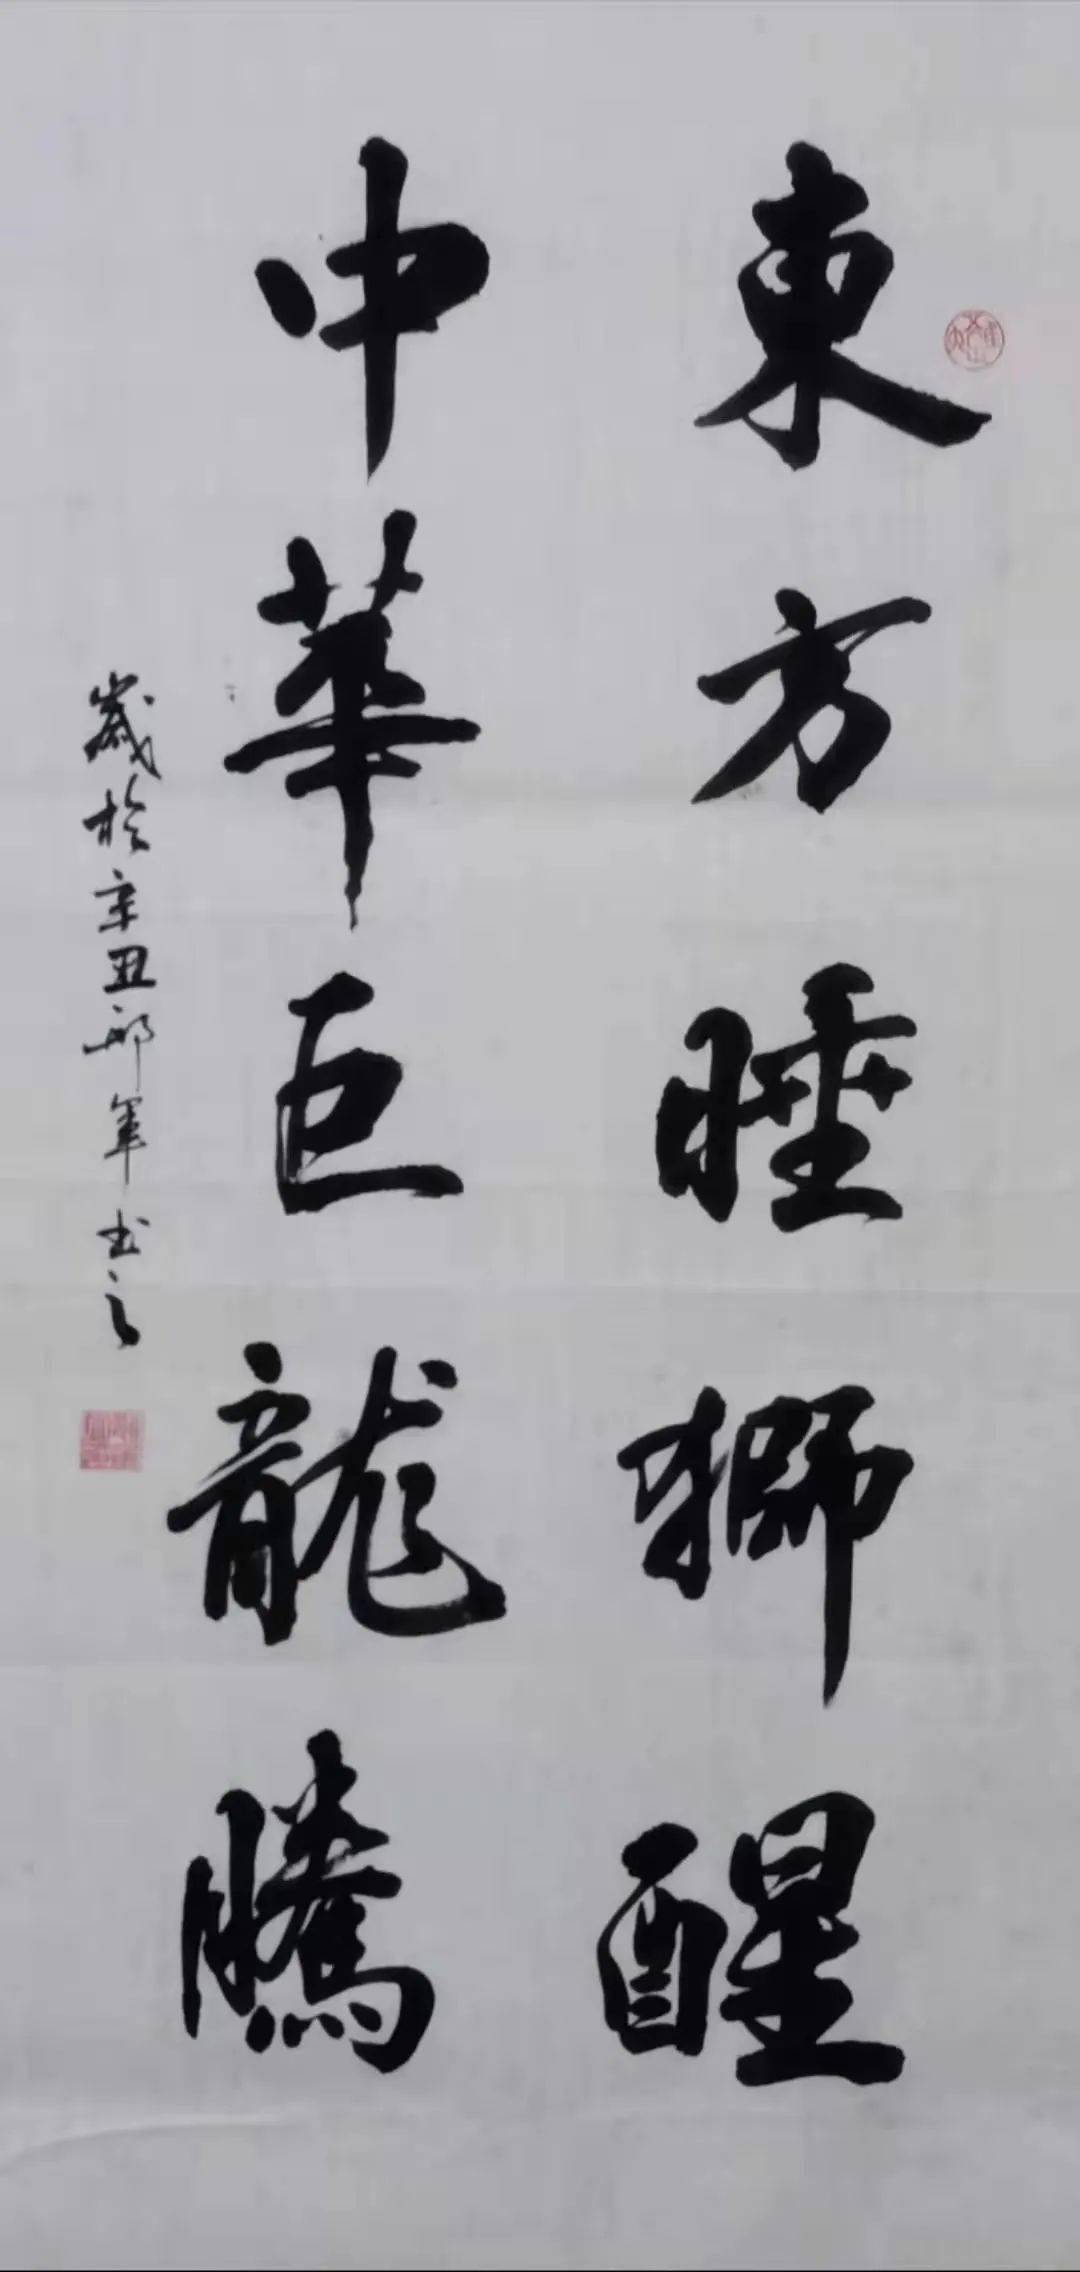 東方睡獅醒
中華巨龍騰
歲於辛丑邱軍书之